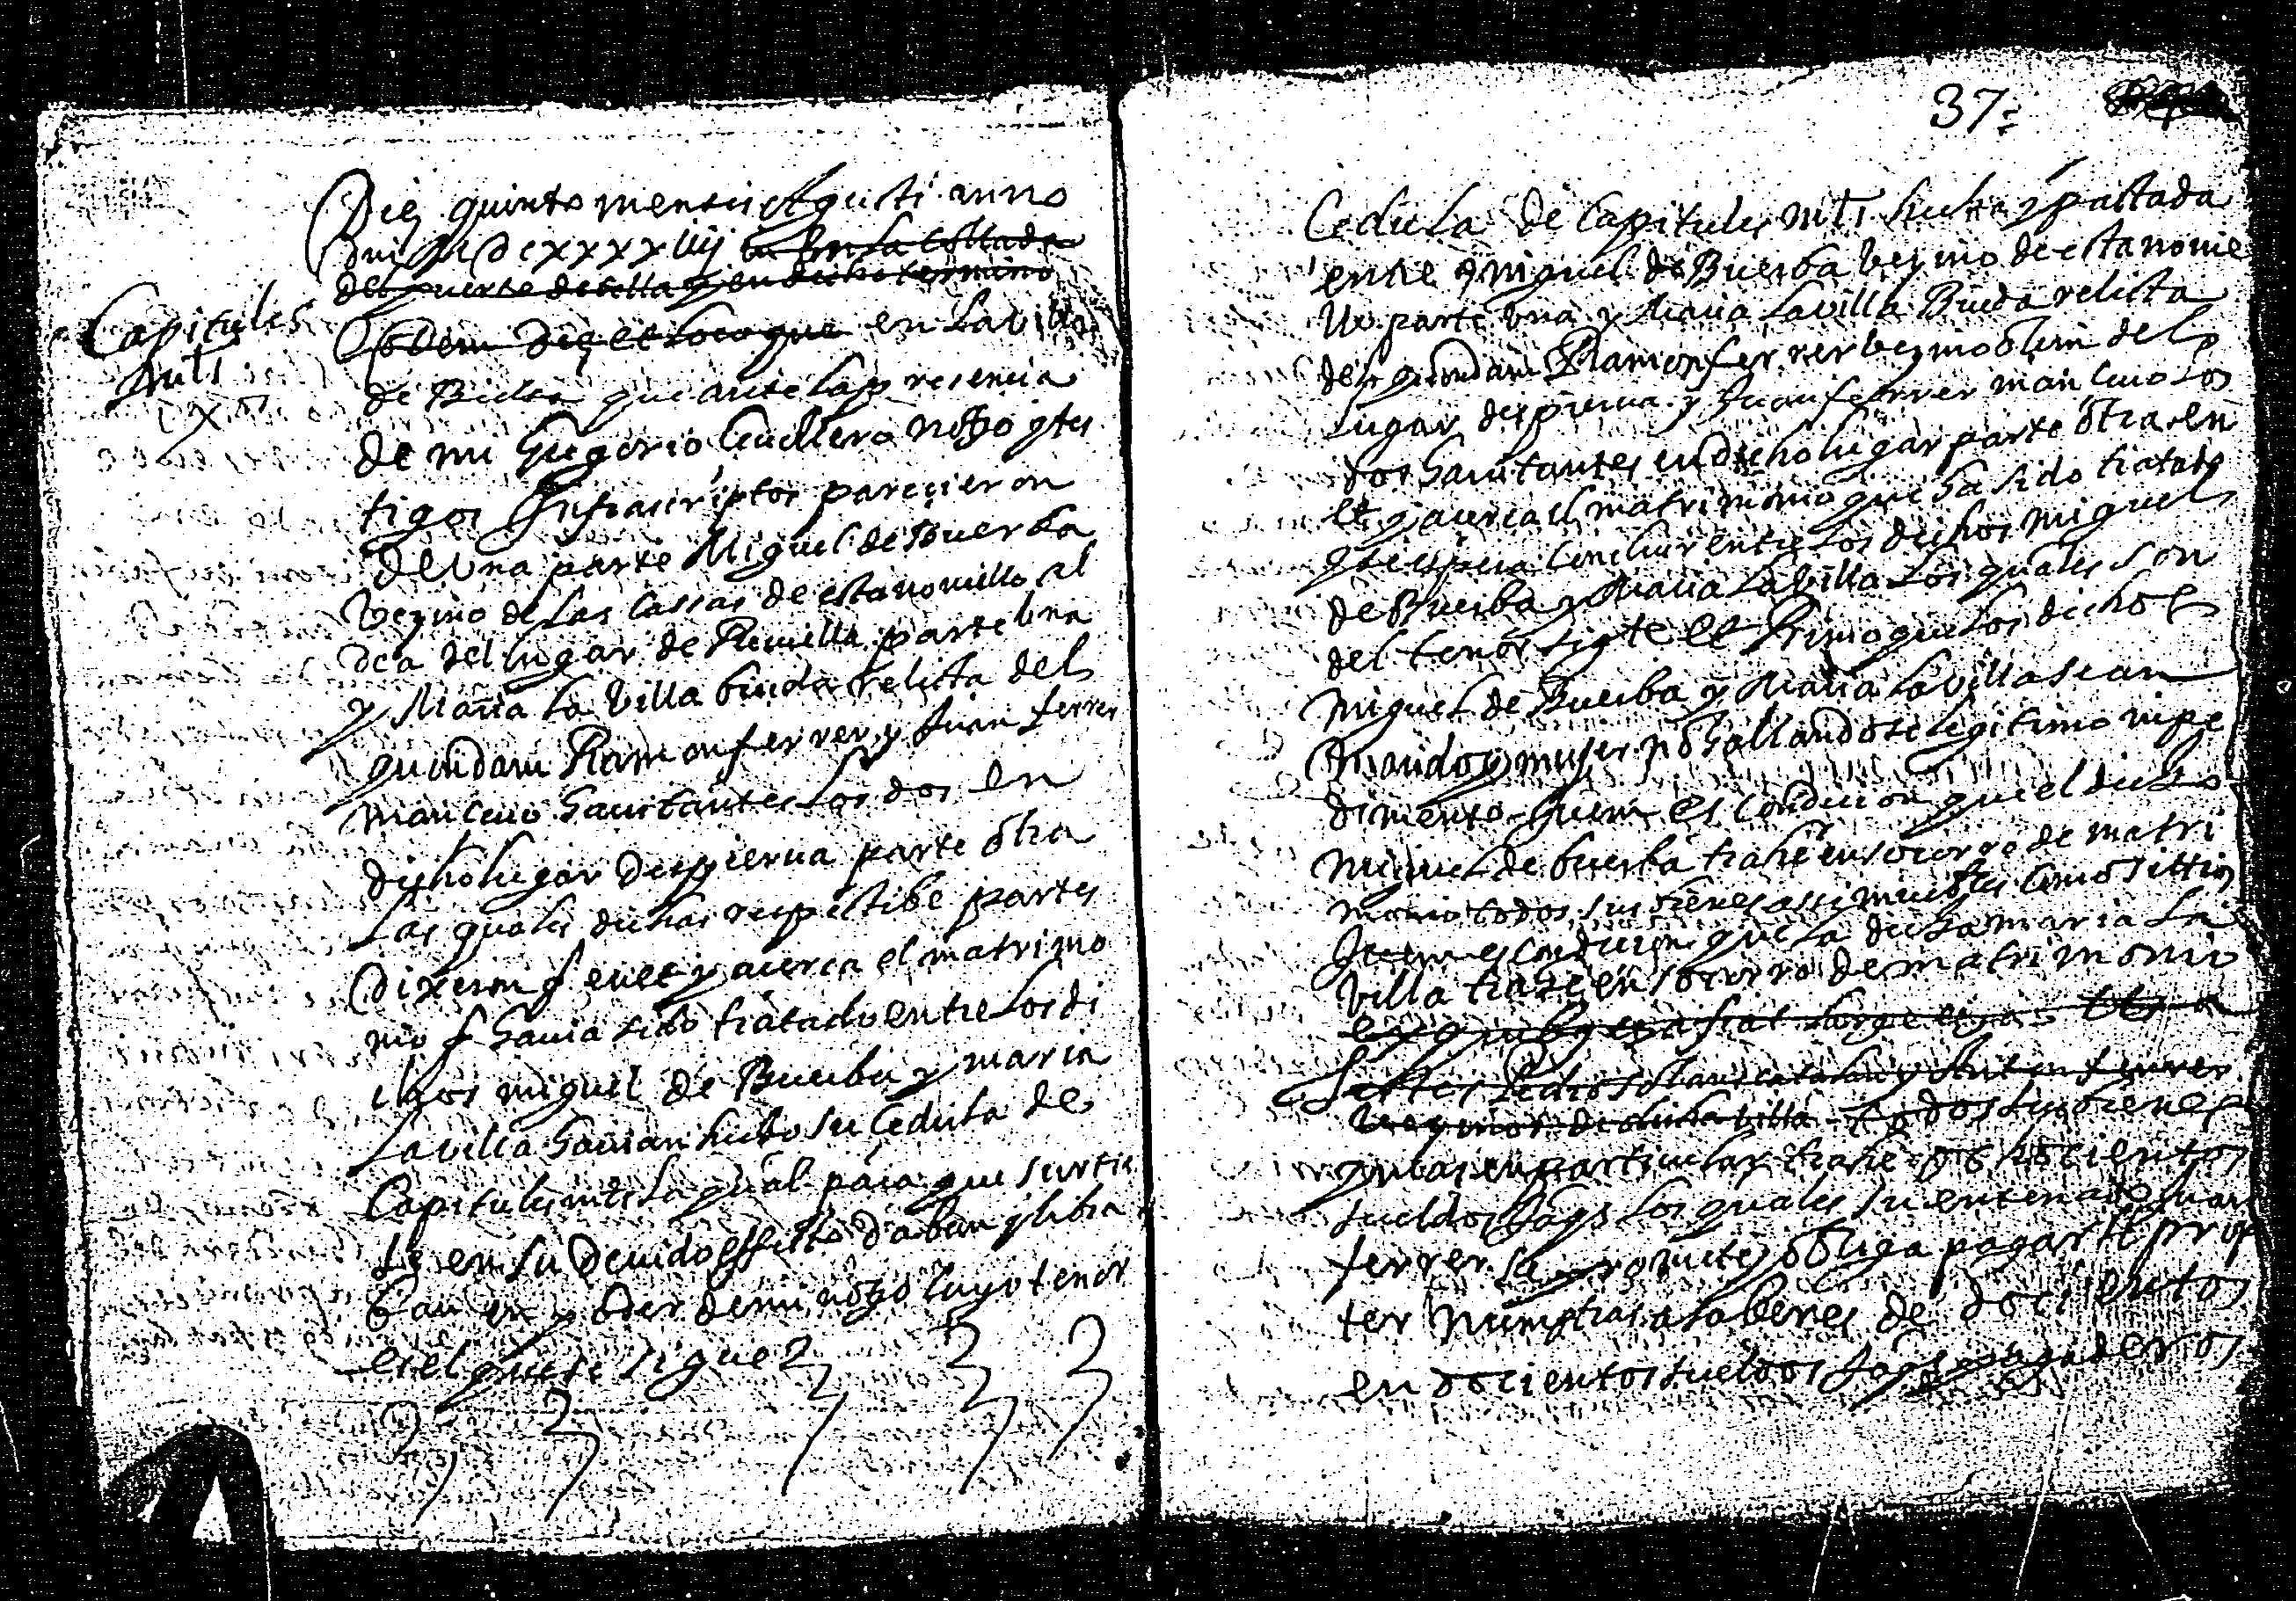 Die quinto mensis Agusti anno
Dni M DCxxxxviiij en la collada
del puerto de biella y en dicho termino
Capitules
mtls
Eodem die et loco que en la villa
de Bielsa que ante la presencia
de mi Grigorio Cavallero noto y tes
tigos Infrascriptos parecieron
de una parte Miguel de Buerba
vezino de las cassas de estaronillo al
dea del lugar de Revilla parte una
y Maria la Villa biuda relicta del
quondam Ramon ferrer y Juan ferrer
mancevo havitantes los dos en
dicho lugar despierva parte otra
Las quales dichas respectibe partes
Dixeron q en et y acerca el matrimo
nio q havia sido tratado entre los di
chos miguel de Buerba y maria
La villa havian hecho su Cedula de
Capitules mtls la qual para que surtie
se en su devido effecto daban y libra
ban en poder de mi noto cuyo tenor
es el que se sigue
37
Cedula de Capitules mtls hecha y pactada
entre Miguel de Buerba vezino de estaronie
llo parte una y Maria Lavilla Biuda relicta
del quondam Ramon ferrer vezino olim del
lugar despierva y Juan ferrer mancevo los
dos havitantes en dicho lugar parte otra en
et y acerca el matrimonio que ha sido tratado
y se espera concluir entre los dichos miguel
de Buerba y Maria Lavilla los quales son
del tenor sigte et Primo que los dichos
Miguel de Buerba y Maria Lavilla sean
Marido y muger no hallandose legitimo inpe
dimento Item es condicion que el dicho
Miguel de buerba trahe en socorro de matri
monio todos sus bienes assi muebles como sittios
Item es condicion que la dicha maria La
villa trahe en socorro de matrimonio
ex quibus fiat large
Testes Pedro catalan y Anton ferrer
vezinos de dicha villa todos sus bienes
y mas en particular trahe ochocientos
sueldos Jaqs los quales su entenado Juan
ferrer la promete y obliga pagar prop
ter numptias a saber es de docientos
en docientos sueldos Jaqs pagaderos